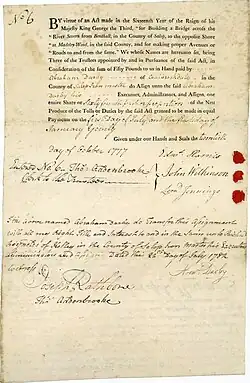 No 6
BY virtue of an Act made in the Sixteenth Year of the Reign of his
Majesty King George the Third, "for Building a Bridge across the
"River Severn from Benthall, in the County of Salop, to the opposite Shore
"at Madeley-Wood, in the said County, and for making proper Avenues or
"Roads to and from the same," We whose Names are hereunto set, being
Three of the Trustees appointed by and in Pursuance of the said Act, in
Consideration of the Sum of Fifty Pounds to us in Hand paid by
Abraham Darby of in the
County of Salop do Assign unto the said Abraham
Darby his Executors, Administrators, and Assigns, one
entire Share or of the Neat
Produce of the Tolls or Duties by the said Act granted to be made in equal
Payments on the first Day of July and the first Day of
January Yearly
Given under our Hands and Seals the twentieth
Day of October 1777
Edwd Harries
Enter'd No 6 Thos Addenbrooke
Clerk to the Trustees
John Wilkinson
Leond Jennings
The above named Abraham Darby do Transfer this Assignment
with all my Right Title and Interest to and in the same unto
of in the County of Salop Iron Master his Executors
Administrators and Assigns Dated this Day of July
Witness
Abm Darby
Joseph Rathbone
Thos Addenbrooke